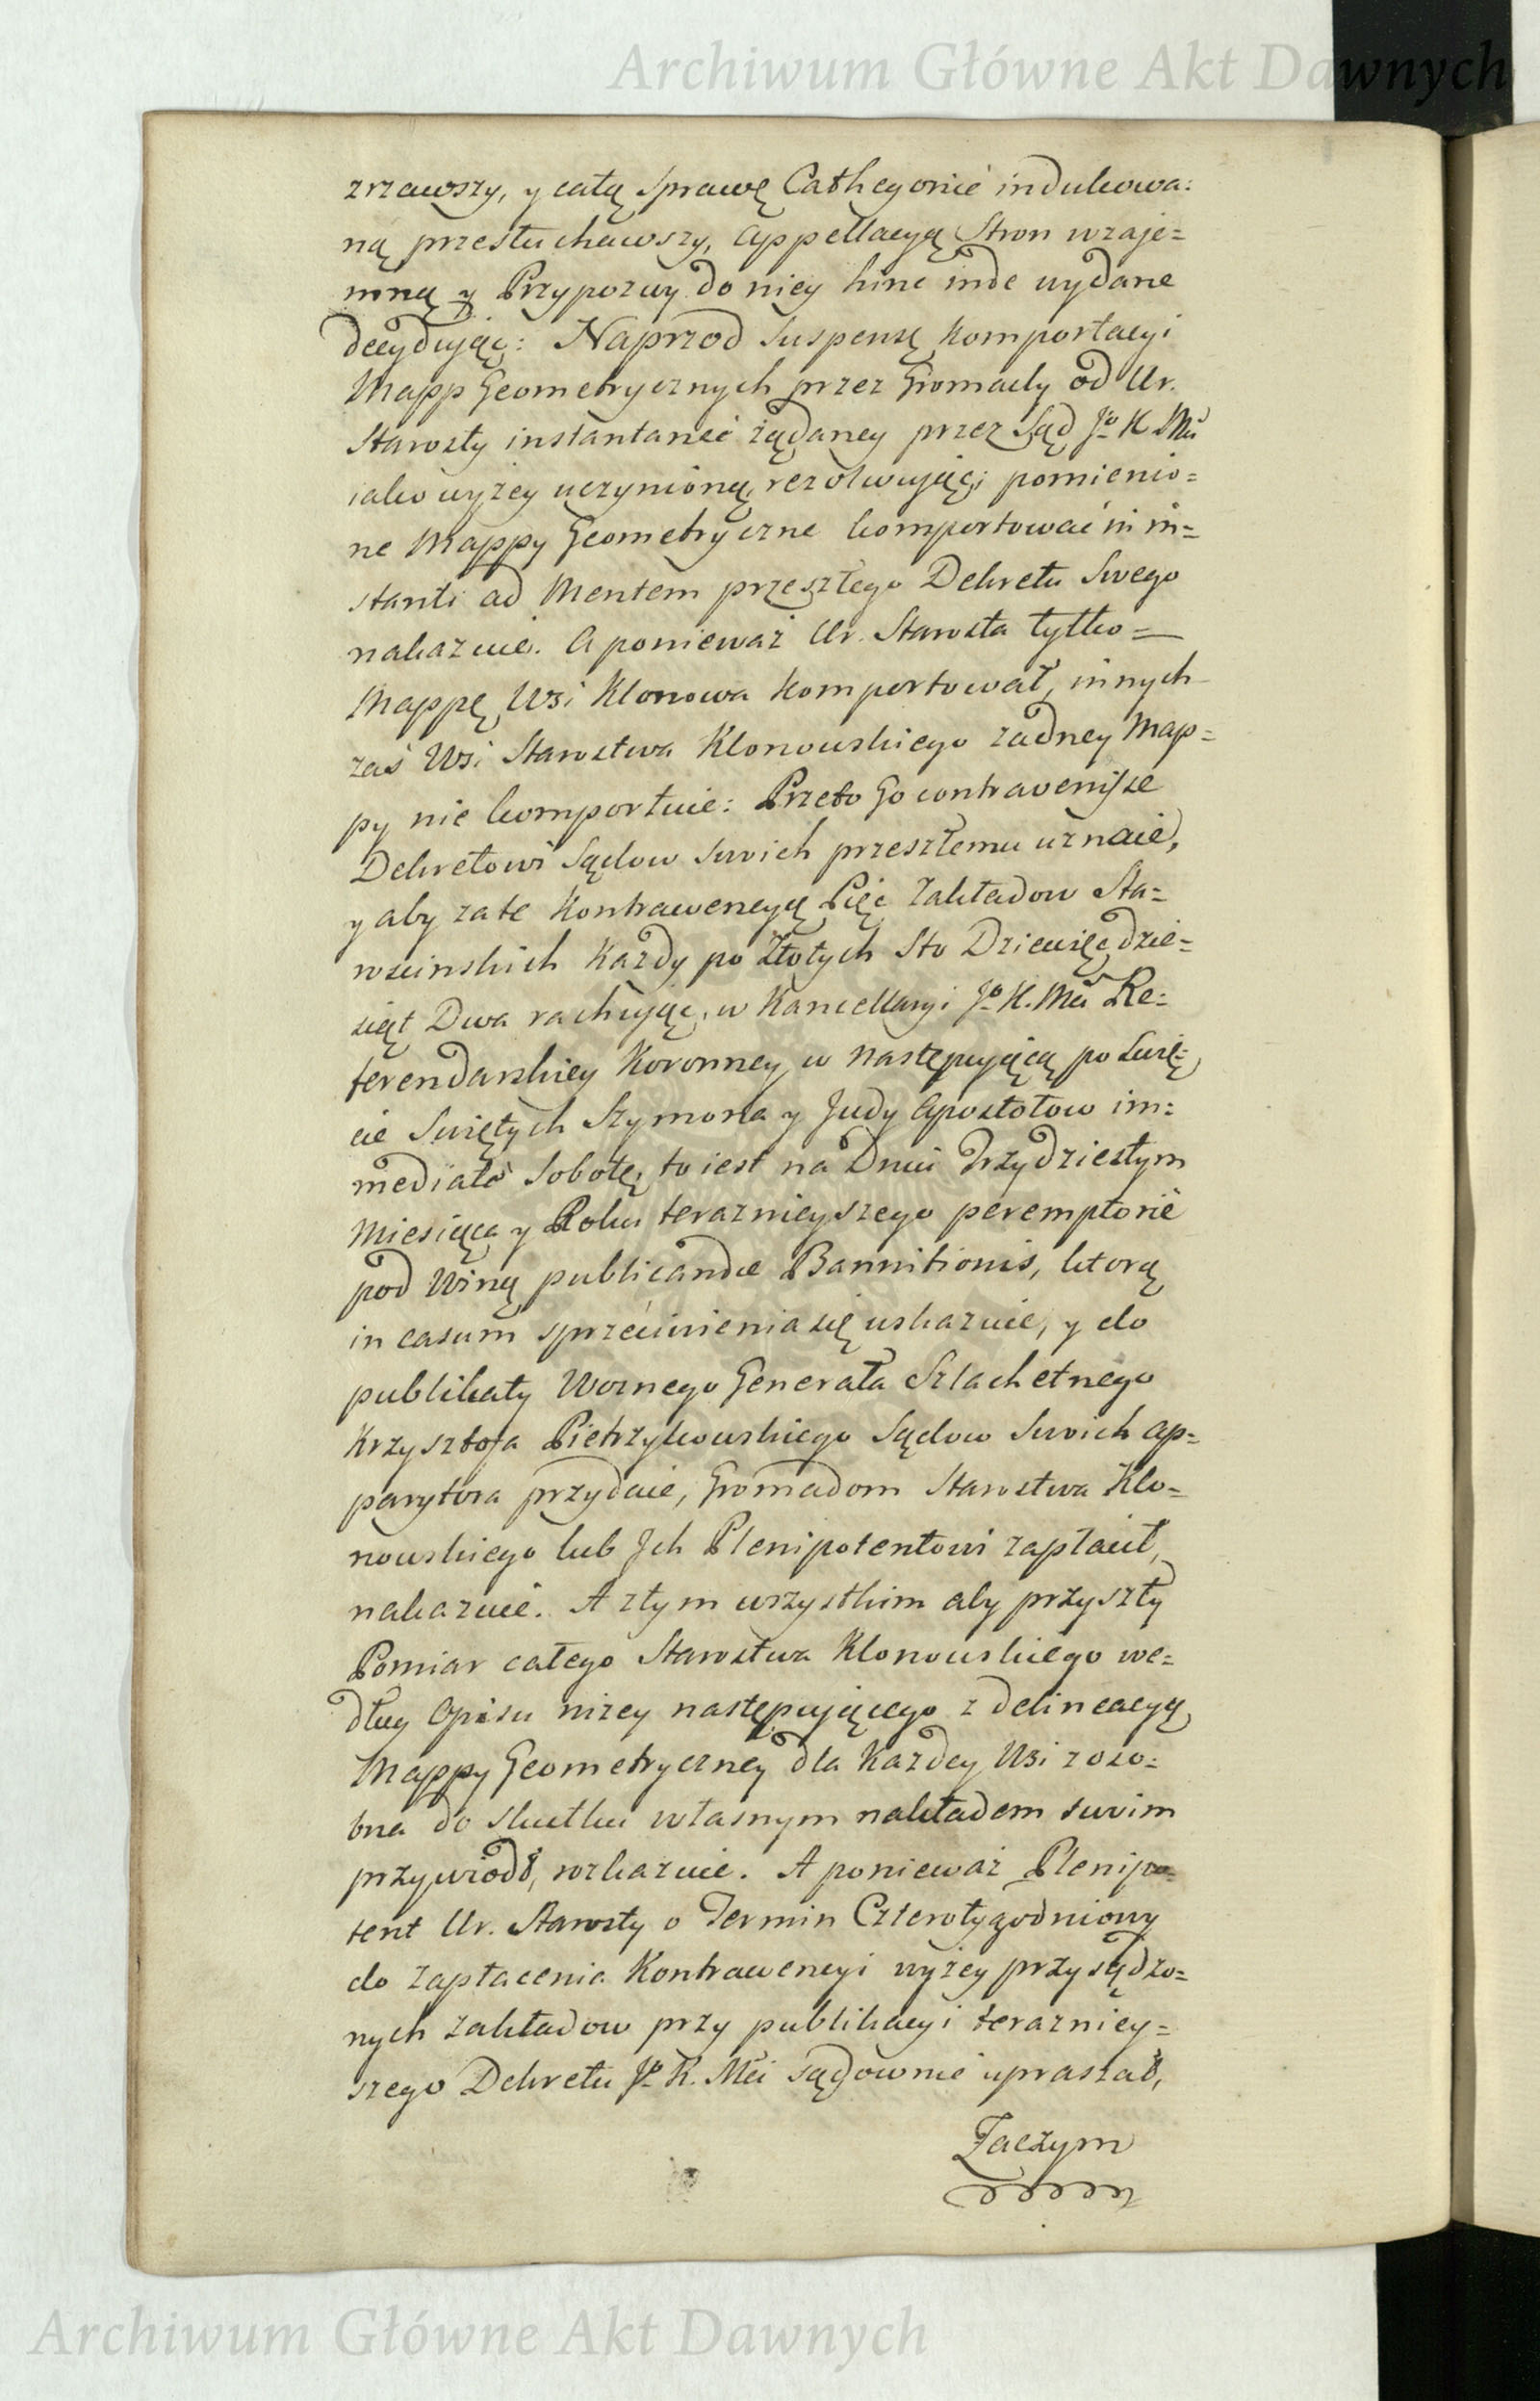 Archiwum Główne Akt Dawnych
zrzawszy, y całą Sprawę Cathegoricè indukowa:
ną przesłuchawszy, Appellacyą Stron wzaje=
mną y Przypozwy do niey hinc inde wydane
decyduiąc: Naprzod Suspensę Komportacyi
Mapp Geometrycznych przez Gromady od Ur.
Starosty instantaneè żądaney przez Sąd Jo K Mci
iako wyżey uczynioną, rezolwuiąc; pomienio=
ne Mappy Geometryczne komportować in in=
stanti ad Mentem przeszłego Dekretu Swego
nakazuie. A ponieważ Ur. Starosta tylko=
Mappę Wsi Klonowa Komportował, innych
zaś Wsi Starostwa Klonowskiego żadney Map=
py nie komportuie: Przeto Go contravenisse
Dekretowi Sądow Swoich przeszłemu uznaie,
y aby zate Kontrawencyą Pięć Zakładow Sta=
rościnskich Każdy po Złotych Sto Dziewięćdzie=
siąt Dwa rachuiąc, w Kancellaryi Jo K. Mci Re=
ferendarskiey Koronney w następuiącą po Świę=
cie Swiętych Szymona y Judy Apostołow im=
mediatè Sobotę, to iest na Dniu Trzydziestym
Miesiąca y Roku teraznieyszego peremptoriè
pod Winą publicandæ Bannitionis, ktorą
in casum sprzeciwienia się wskazuie, y do
publikaty Woznego Generała Szlachetnego
Krzysztofa Pietrzykowskiego Sądow Swoich Ap=
parytora przydaie, Gromadom Starostwa Klo=
nowskiego lub Jch Plenipotentowi zapłacił,
nakazuie. A ztym wszystkim aby przyszły
Pomiar całego Starostwa Klonowskiego we=
dług Opisu niżey następuiącego z delineacyą
Mappy Geometryczney dla Każdey Wsi z oso=
bna do skutku własnym nakładem swoim
przywiodł, rozkazuie. A ponieważ Plenipo=
tent Ur. Starosty o Termin Czterotygodniowy
do zapłacenia Kontrawencyi wyżey przysądzo=
nych zakładow przy publikacyi terazniey=
szego Dekretu Jo K. Mci sądownie upraszał,
Zaczym
Archiwum Główne Akt Dawnych